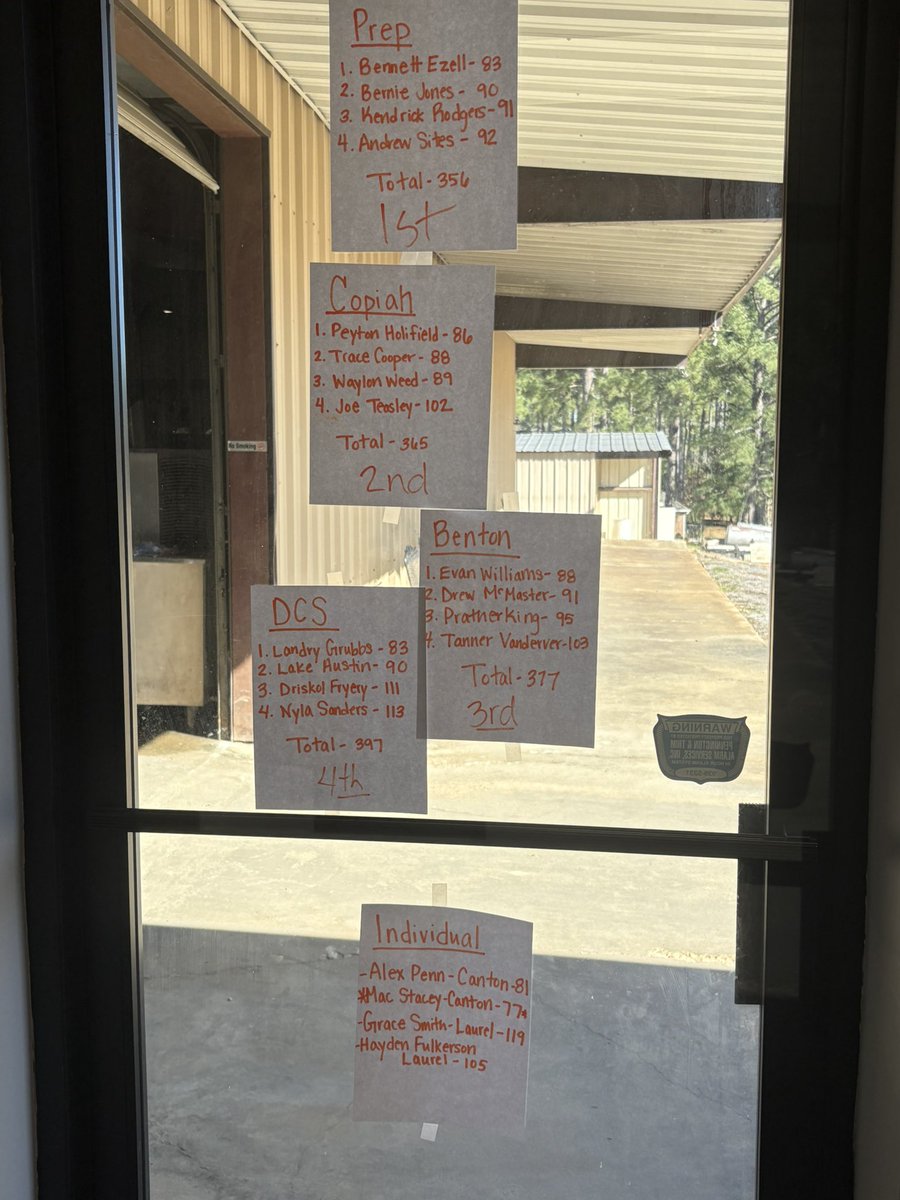 Prep
1. Bennett Ezell - 83
2. Bernie Jones - 90
3. Kendrick Rodgers - 91
4. Andrew Sites - 92
Total - 356
1st
Copiah
1. Peyton Holifield - 86
2. Trace Cooper - 88
3. Waylon Weed - 89
4. Joe Teasley - 102
Total - 365
2nd
No Smoking
Benton
1. Evan Williams - 88
2. Drew McMaster - 91
3. Prather King - 95
4. Tanner Vanderver - 103
Total - 377
3rd
DCS
1. Landry Grubbs - 83
2. Lake Austin - 90
3. Driskol Fryery - 111
4. Nyla Sanders - 113
Total - 397
4th
WARNING
PENNINGTON & TRIM
ALARM SERVICES, INC.
Individual
- Alex Penn - Canton - 81
*Mac Stacey - Canton - 77*
- Grace Smith - Laurel - 119
- Hayden Fulkerson
Laurel - 105